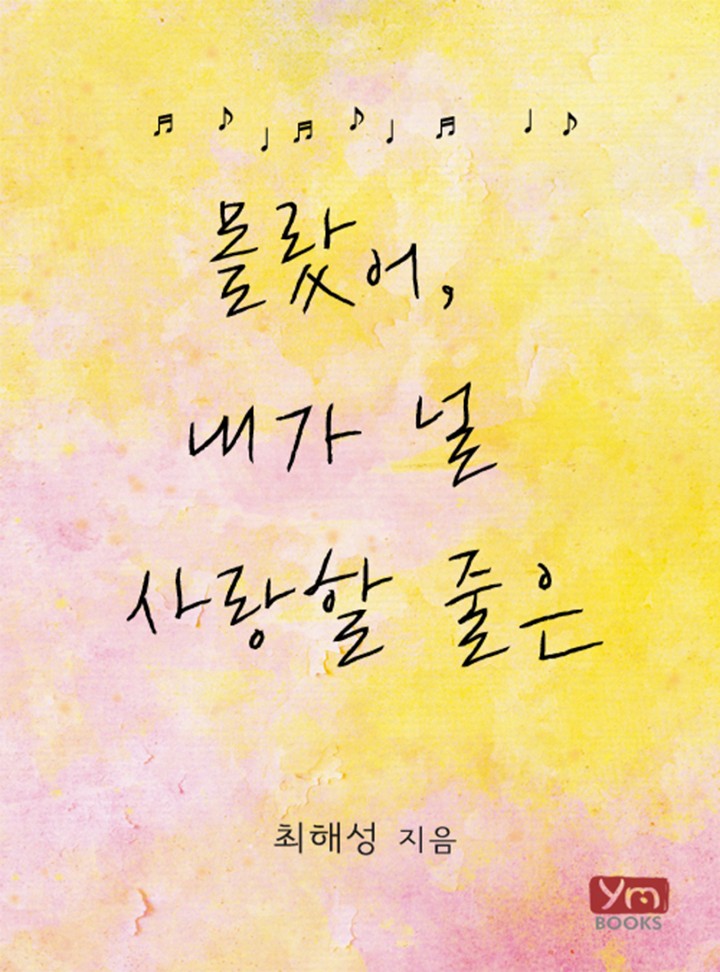 몰랐어,
내가 널
사랑할 줄은
최해성 지음
ym
BOOKS